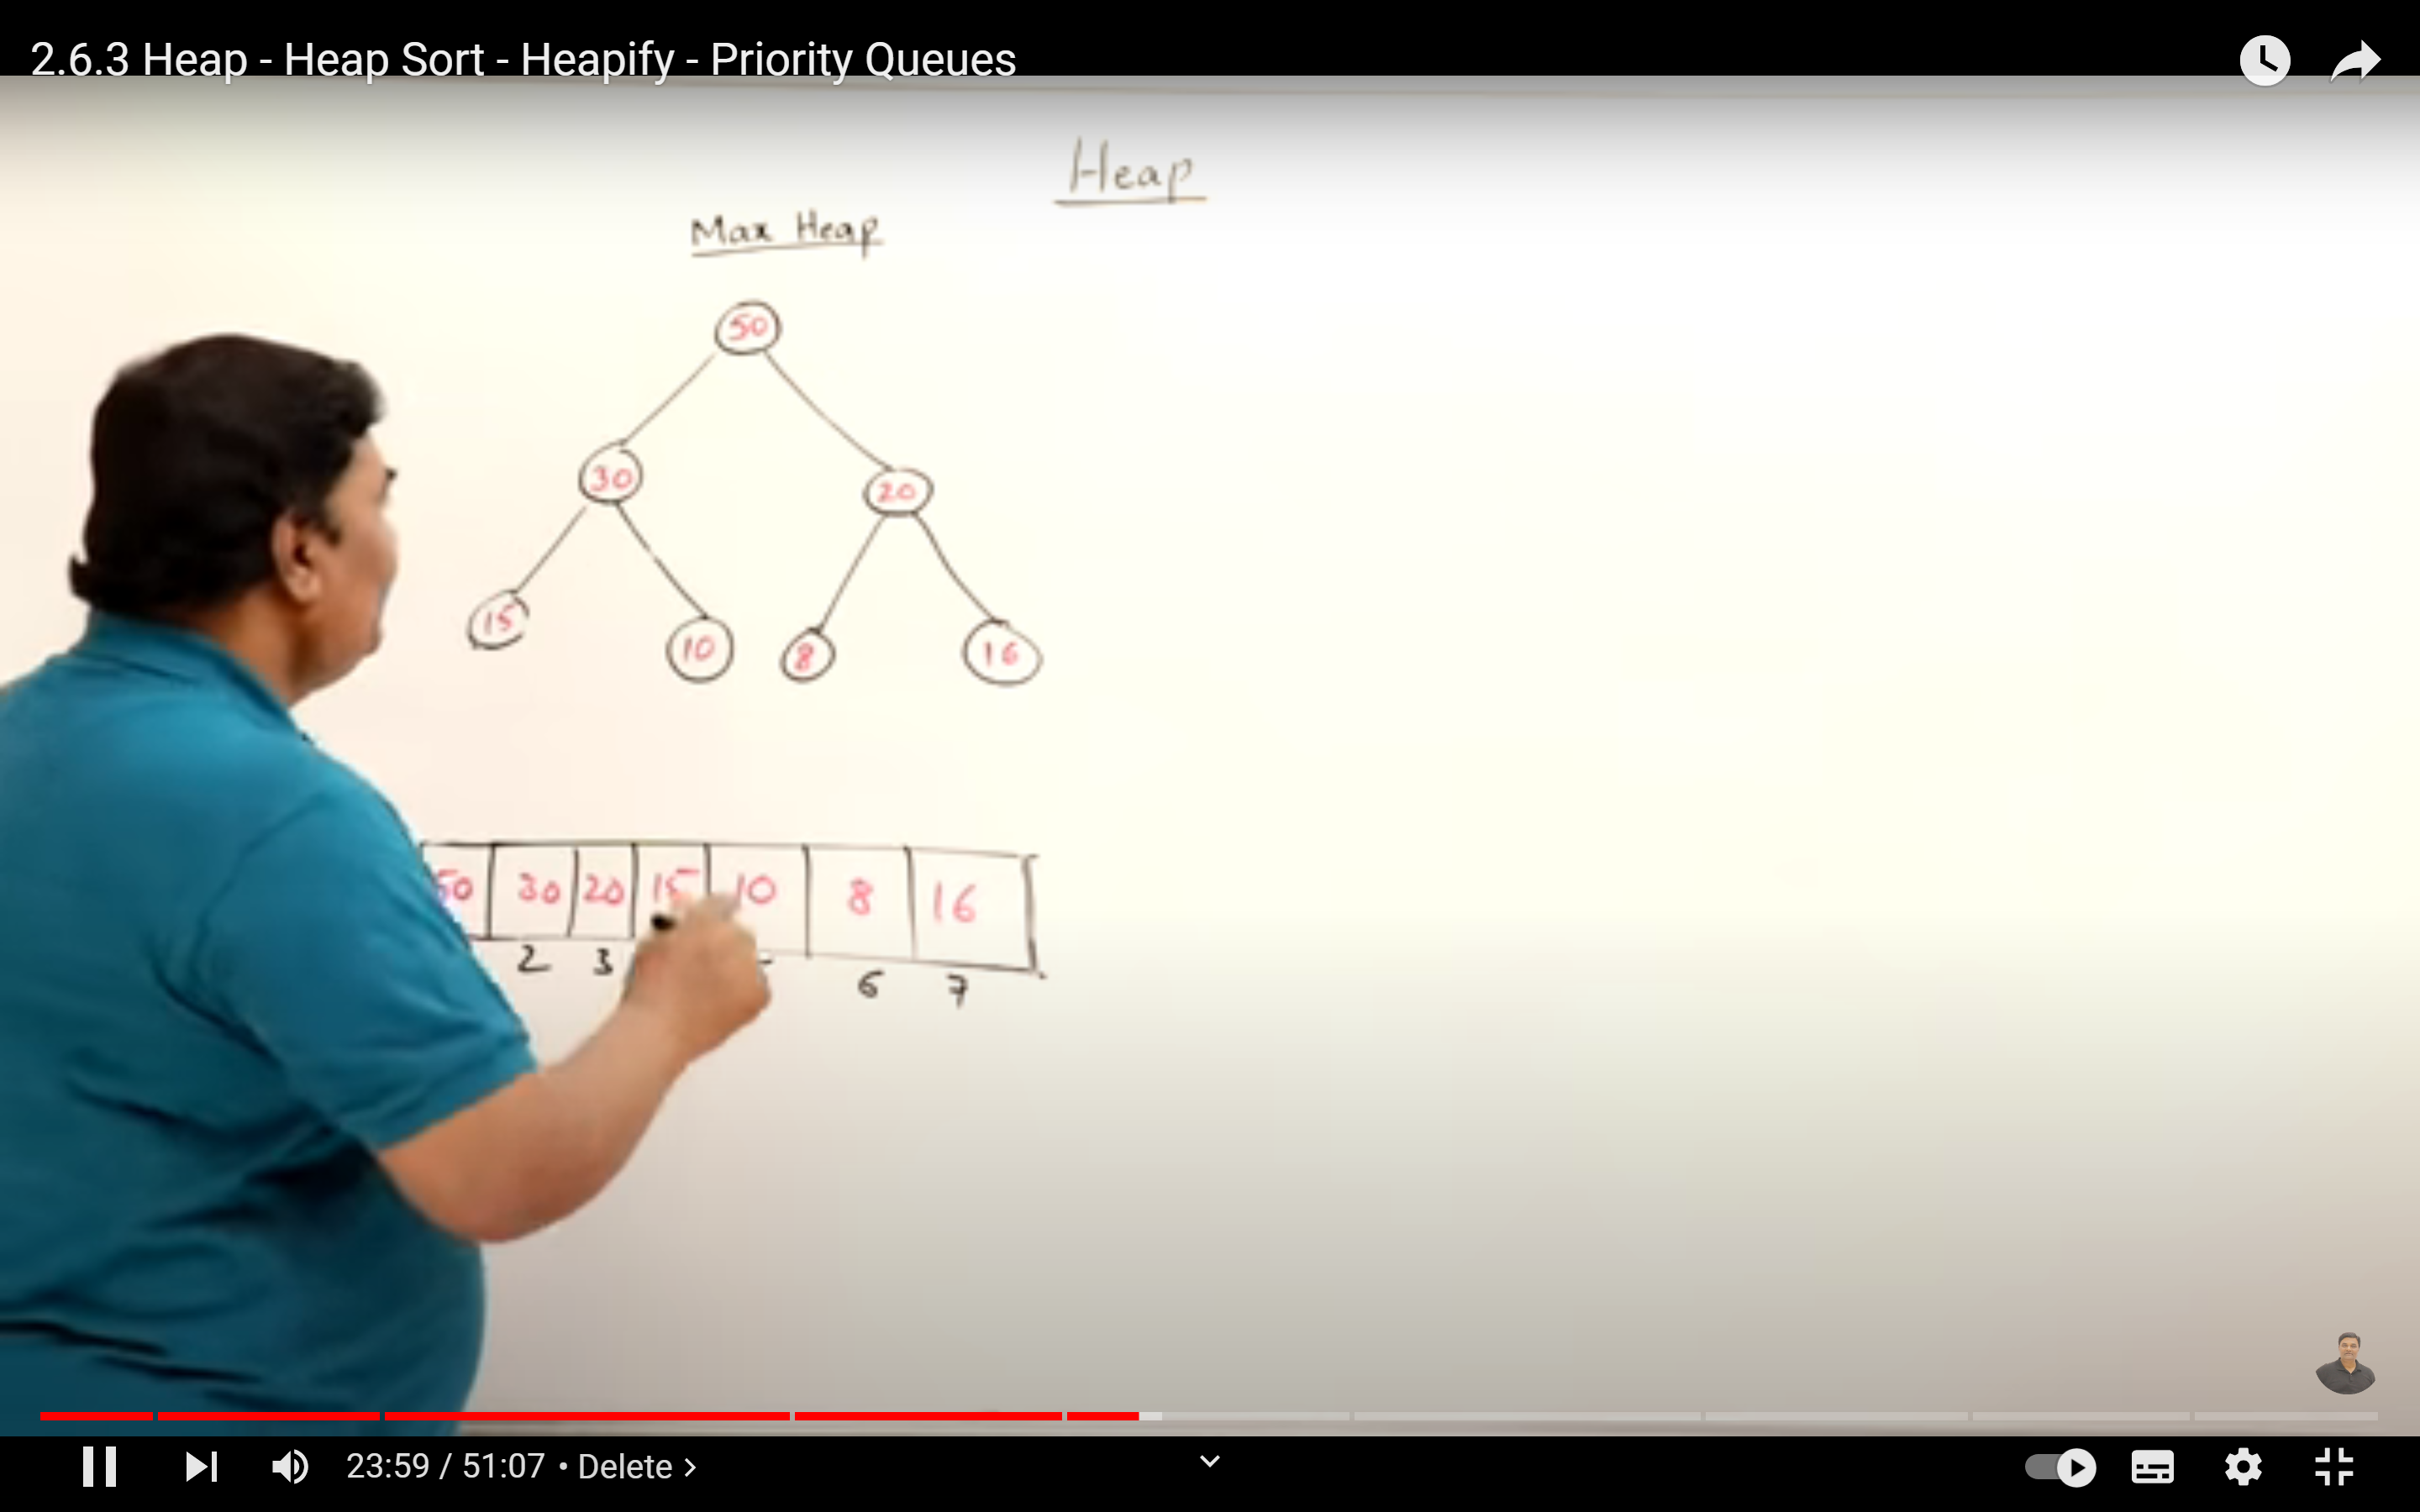 2.6.3 Heap - Heap Sort - Heapify - Priority Queues
Heap
Max Heap
50
30 20
15 10 8 16
50 30 20 15 10 8 16
2 3 6 7
23:59 / 51:07 • Delete >